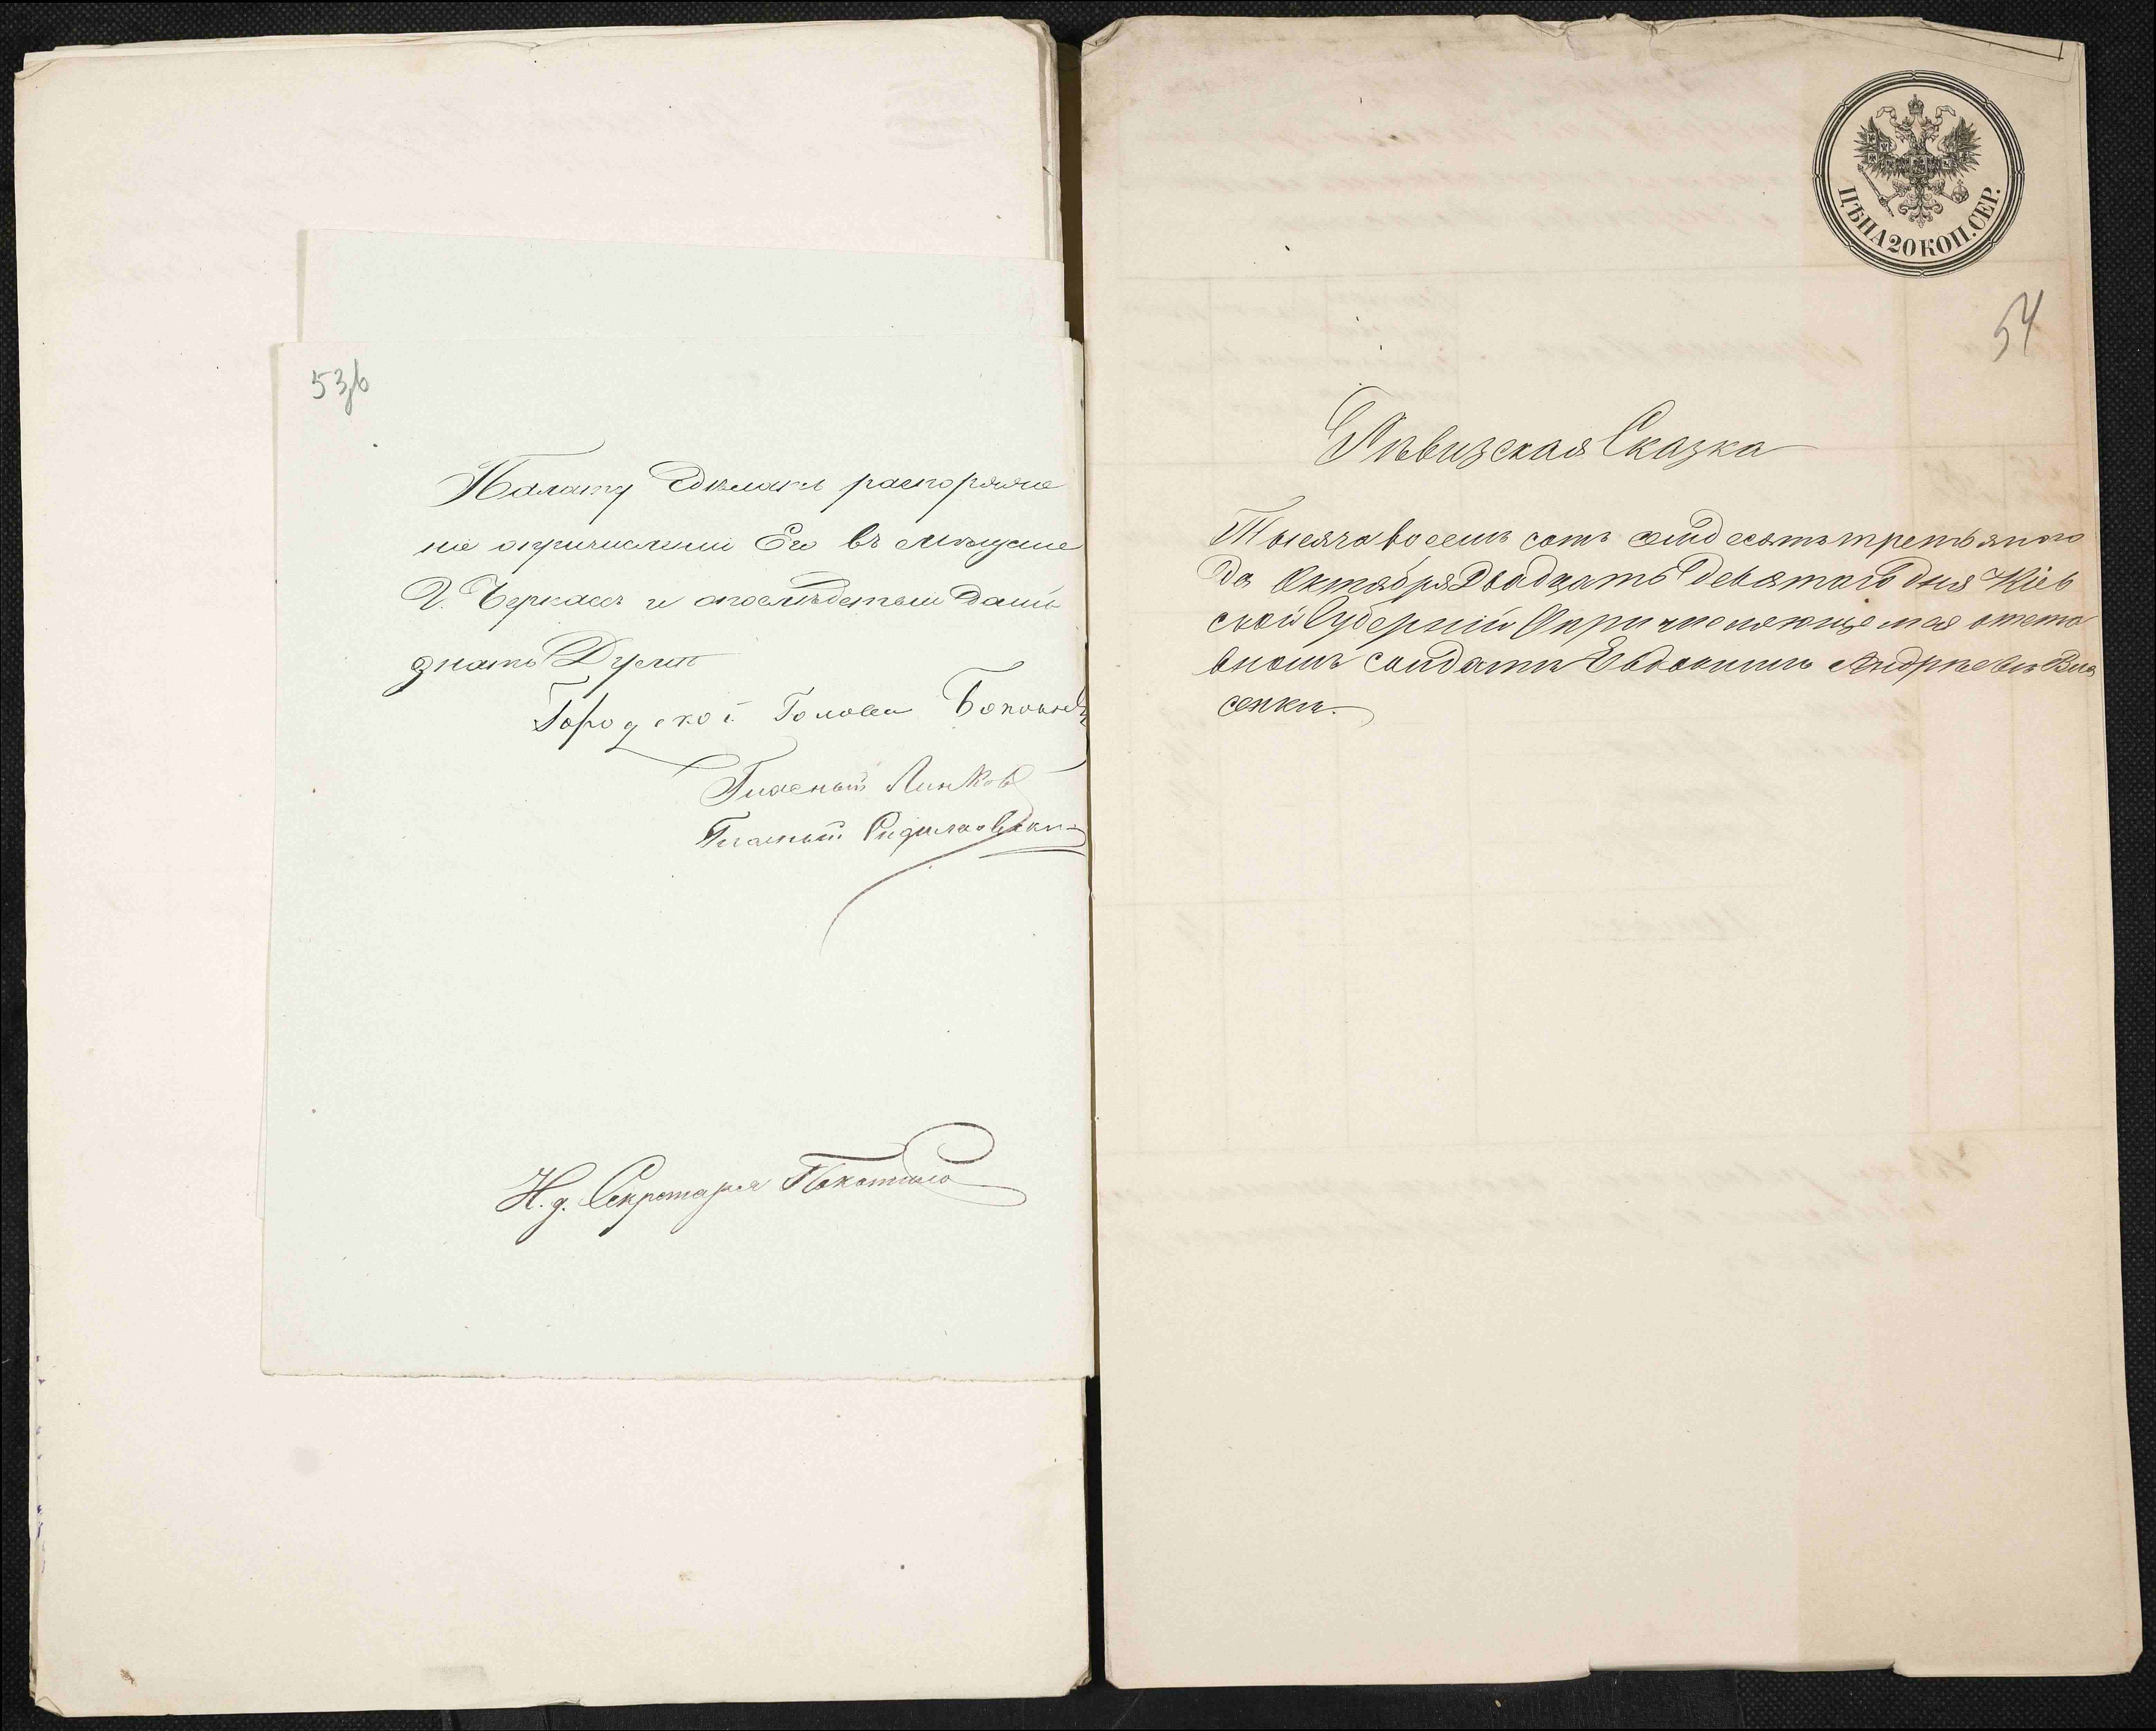 53/6
Палату Сделать распоряже
ніе опричисленіи Его въ мещане
Г. Черкасъ и опослѣдствіи дать
знать Думѣ
Городской Голова
Гласный Линков
Гласный
И. д. Секретаря Покотило
ЦѢНА 20 КОП. СЕР.
54
Ревизская Сказка
Тысяча восемь сотъ семдесятъ третьяго го
да Октября Двадцать Девятаго дня Кіев
ской Губерніи Опричисляющемся отста
вномъ солдатѣ Евдокимѣ Андреевѣ Вла
сенкѣ.